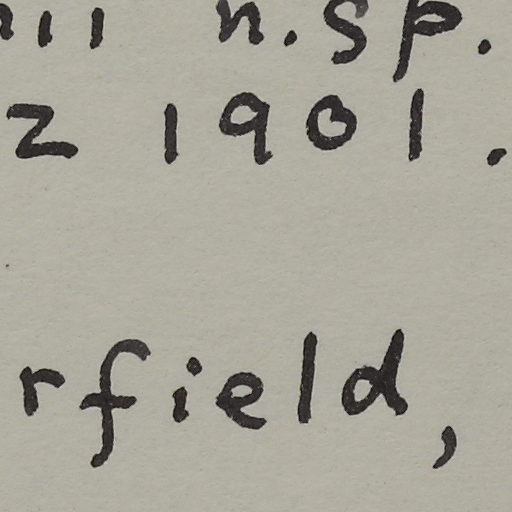 n.sp.
z 1901.
rfield,